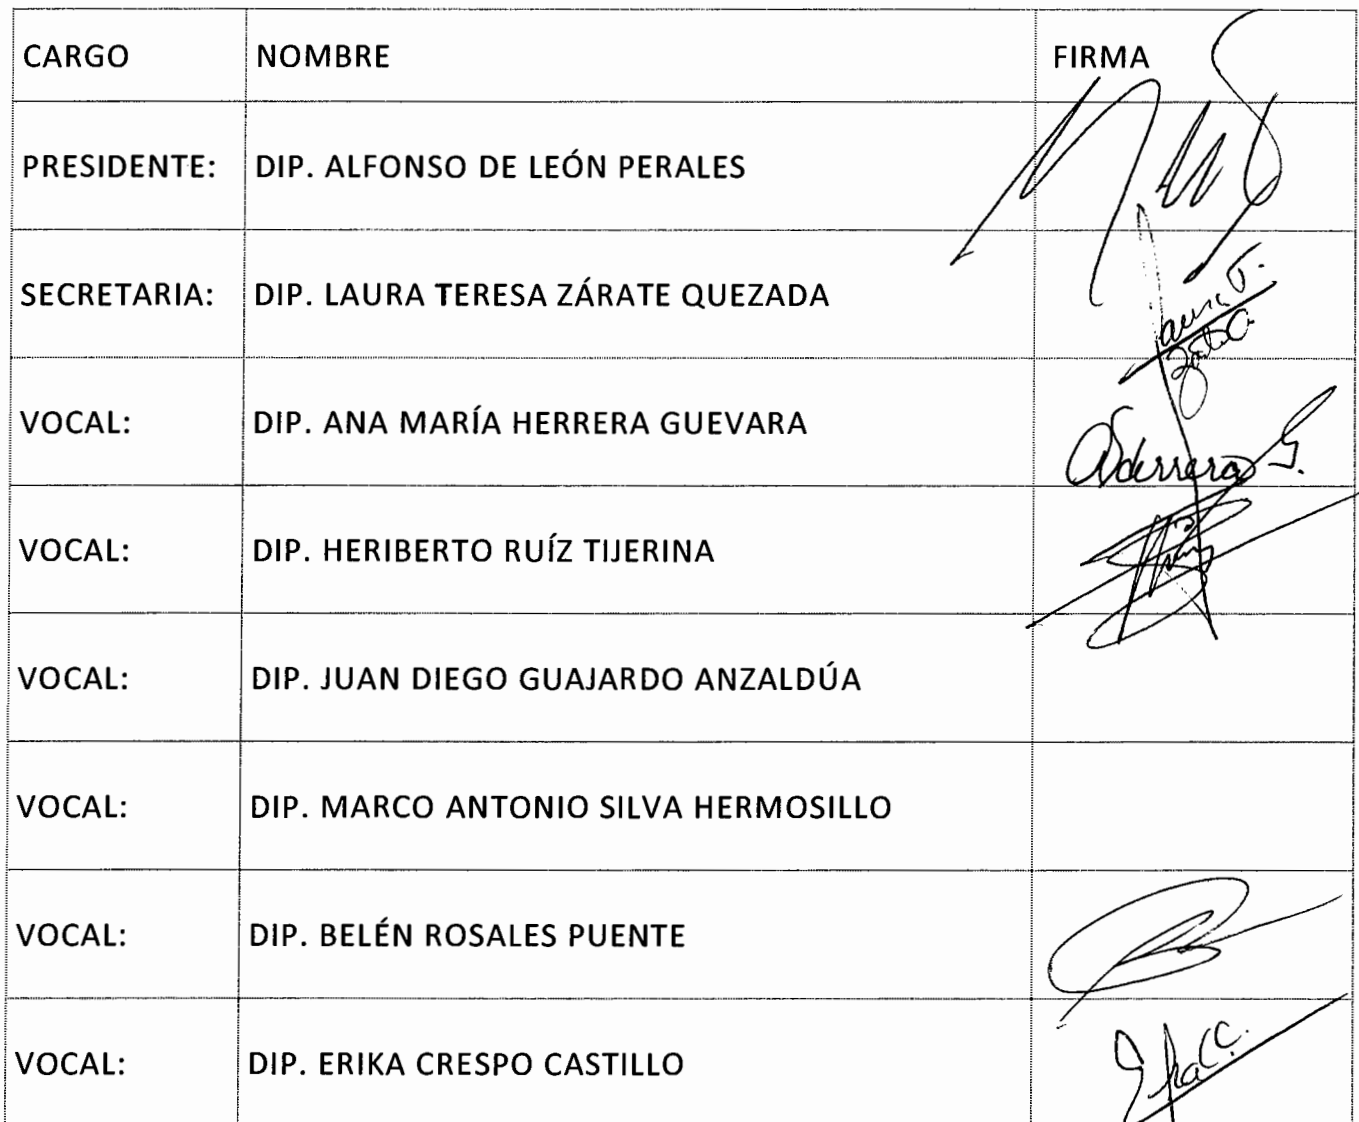 CARGO NOMBRE FIRMA
PRESIDENTE: DIP. ALFONSO DE LEÓN PERALES
SECRETARIA: DIP. LAURA TERESA ZÁRATE QUEZADA
Laura T.
VOCAL: DIP. ANA MARÍA HERRERA GUEVARA
Herrera G.
VOCAL: DIP. HERIBERTO RUÍZ TIJERINA
VOCAL: DIP. JUAN DIEGO GUAJARDO ANZALDÚA
VOCAL: DIP. MARCO ANTONIO SILVA HERMOSILLO
VOCAL: DIP. BELÉN ROSALES PUENTE
VOCAL: DIP. ERIKA CRESPO CASTILLO